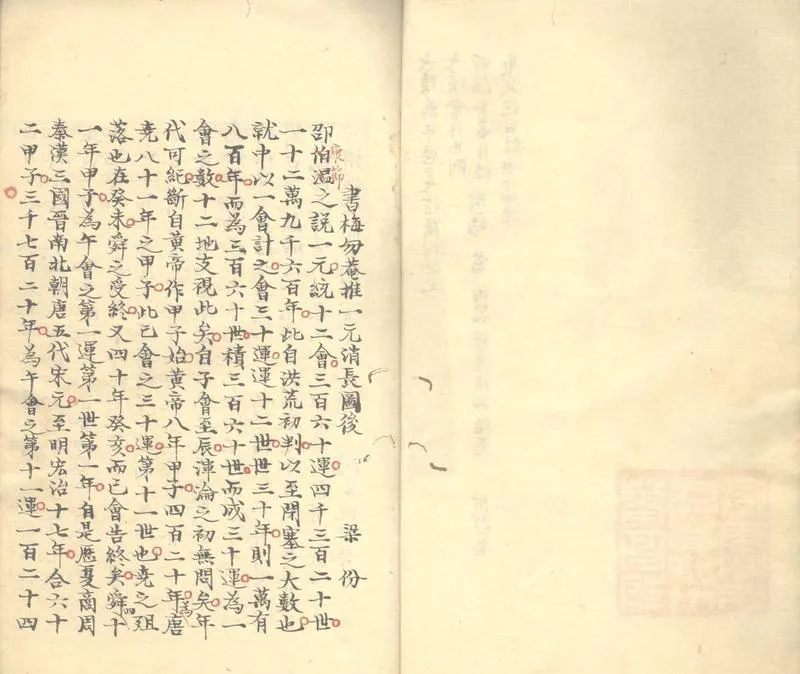 書梅勿菴推一元消長圖後 梁份
邵伯溫之説一元統十二會三百六十運四千三百二十世
康節
一十二萬九千六百年此自洪荒初判以至閉塞之大數也
就中以一會計之會三十運運十二世世三十年則一萬有
八百年而為三百六十世積三百六十世而成三十運為一
會之數十二地支視此矣自子會至辰渾淪之初無問矣年
代可紀斷自黃帝作甲子始黃帝八年甲子四百二十年為唐
堯八十一年之甲子此巳會之三十運第十一世也堯之殂
落也在癸未舜之受終又四十年癸亥而巳會告終矣舜四十
一年甲子為午會之第一運第一世第一年自是歷夏商周
秦漢三國晉南北朝唐五代宋元至明宏治十七年合六十
二甲子三千七百二十年為午會之第十一運一百二十四